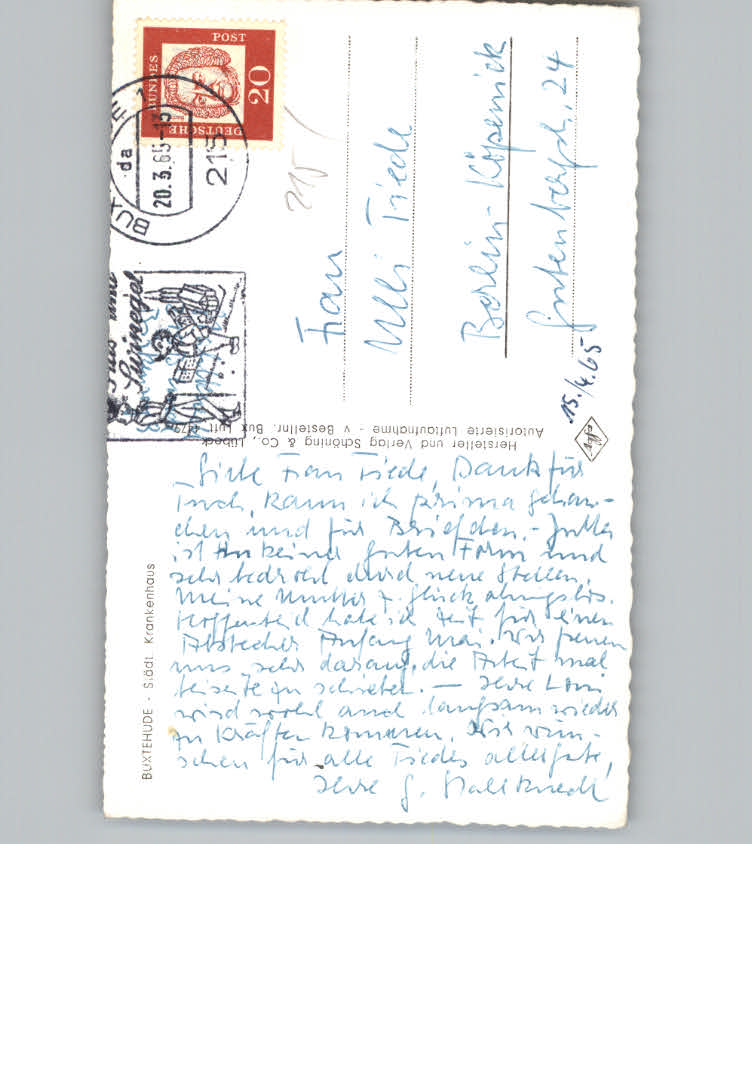 DEUTSCHE
BUNDES
POST
20
BUX
20.3.65-13
da
215
Has und
Swinegel
215
Frau
Ulli Tiede
Berlin-Köpenick
Gutenbergstr. 24
15./4.65
Hersteller und Verlag Schöning & Co., Lübeck
Autorisierte Luftaufnahme - v Bestellnr. Bux Luft
BUXTEHUDE - Städt. Krankenhaus
Liebe Frau Tiede, Dank für
Tuch, kann ich prima gebrau-
chen und für Briefchen. -
ist in keiner guten Form und
sehr bedroht durch neue Stellen,
meine Mutter z. Glück ahnungslos.
Hoffentlich habe ich Zeit für einen
Abstecher Anfang Mai. Wir freuen
uns sehr darauf, die Arbeit mal
beiseite zu schieben. — Ihre
wird wohl auch langsam wieder
zu Kräften kommen. Wir wün-
schen für alle Tiedes alles Gute,
Ihre G.